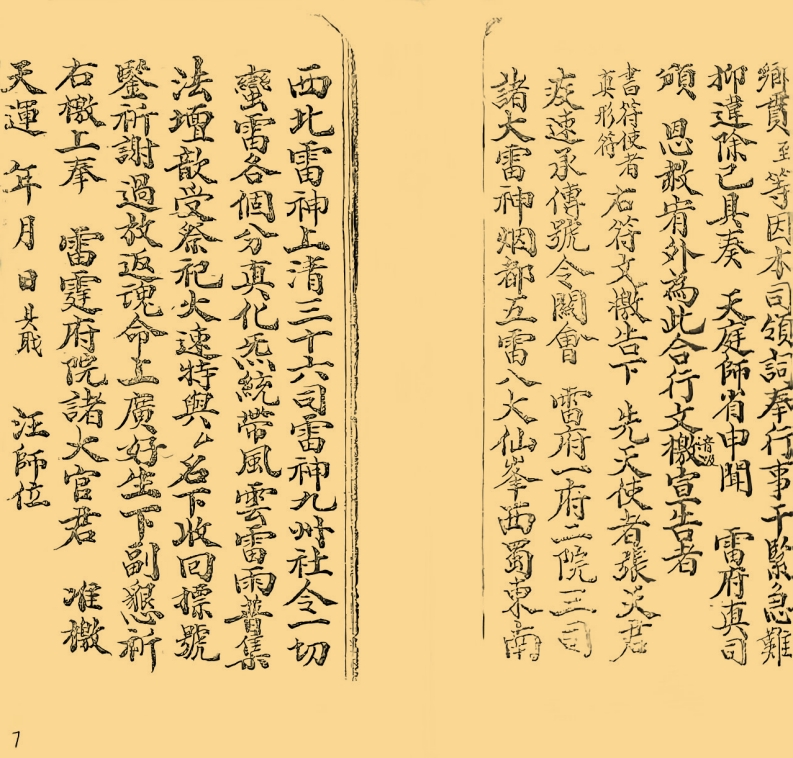 鄉貫至等因本司領詞奉行事干緊急難
抑違除已具奏　天庭師省申聞　雷府真司
頒　恩赦宥外為此合行文檄音汲宣告者
書符使者真形符右符文檄告下　先天使者張天君
疾速承傳號令關會　雷府一府二院三司
諸大雷神烟都五雷八大仙峯西蜀東南
西北雷神上清三十六司雷神九州社令一切
蠻雷各個分真化炁統帶風雲雷雨普集
法壇歆受祭祀火速特與厶名下收回摽號
鑒祈謝過放返魂命上廣好生下副懇祈
右檄上奉　雷霆府院諸大官君　准檄
天運　年月日具職　汪師位
7